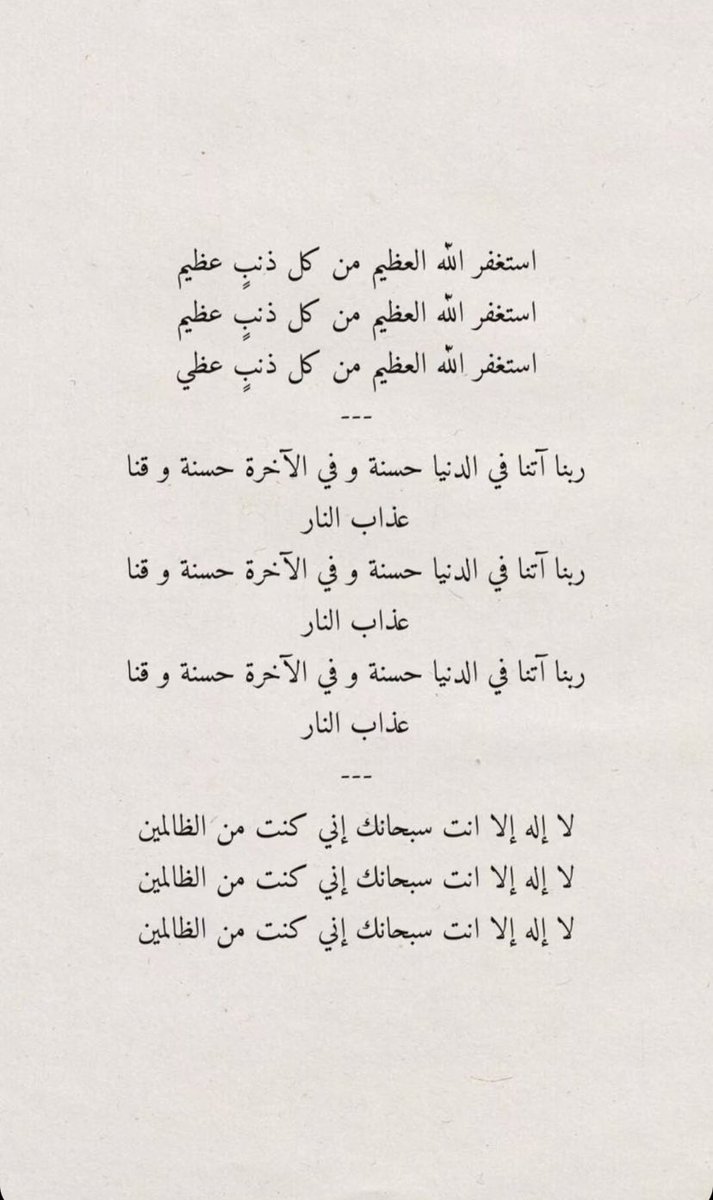 استغفر الله العظيم من كل ذنبٍ عظيم
استغفر الله العظيم من كل ذنبٍ عظيم
استغفر الله العظيم من كل ذنبٍ عظي
---
ربنا آتنا في الدنيا حسنة و في الآخرة حسنة و قنا
عذاب النار
ربنا آتنا في الدنيا حسنة و في الآخرة حسنة و قنا
عذاب النار
ربنا آتنا في الدنيا حسنة و في الآخرة حسنة و قنا
عذاب النار
---
لا إله إلا انت سبحانك إني كنت من الظالمين
لا إله إلا انت سبحانك إني كنت من الظالمين
لا إله إلا انت سبحانك إني كنت من الظالمين